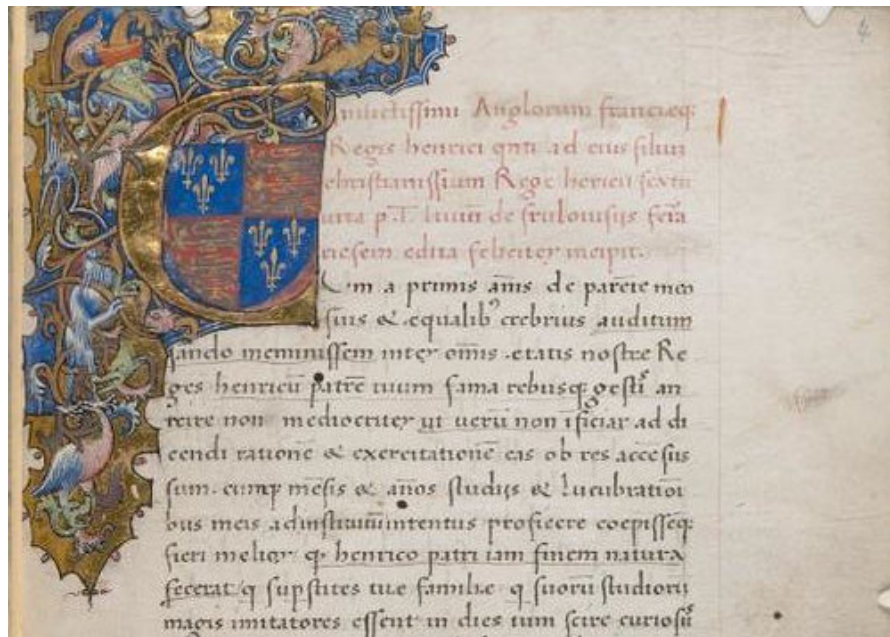 Anglorum francieq;
Regis henrici qnti ad eius filiū
christianissimū Regē hēricū sextū
vita p. T. liuiū de frulouisiis
edita feliciter incipit.
Cum a primis annis de parēte meo
suis & equalib9 crebrius auditum
meminissem inter omīs etatis nostre Re
ges henricū patrē tuum fama rebusq; gestis an
teire non mediocriter ut uerū non ificiar ad di
cendi rationē & exercitationē eas ob res accessus
sum. cumq; mēsis & años studijs & lucubration
bus meis intentus proficere coepisseq;
fieri melior q henrico patri iam finem natura
fecerat q supstites tue familie q suorū studiorū
magis imitatores essent in dies tum scire curiosiꝰ